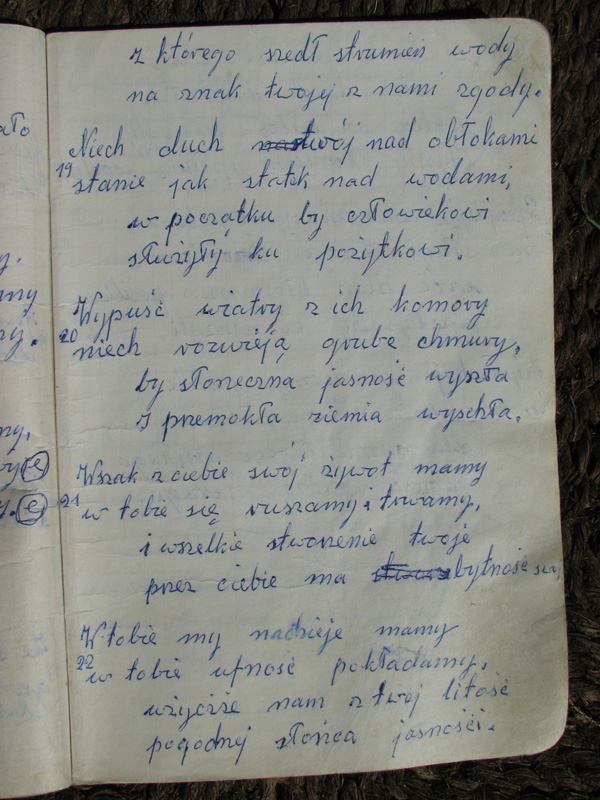 z którego szedł strumień wody
na znak twojej z nami zgody.
Niech duch twój nad obłokami
19 stanie jak statek nad wodami,
w początku by człowiekowi
służyły ku pożytkowi.
Wypuść wiatry z ich komory
20 niech rozwieją grube chmury,
by słoneczna jasność wyszła
z przemokła ziemia wyschła.
Wszak z ciebie swój żywot mamy
21 w tobie się ruszamy i trwamy,
i wszelkie stworzenie twoje
przez ciebie ma bytność swą
W tobie my nadzieje mamy
22 w tobie ufność pokładamy,
użyczże nam z twej litość
pogodnej słońca jasności.
ało
y.
ny.
ny.
e
e